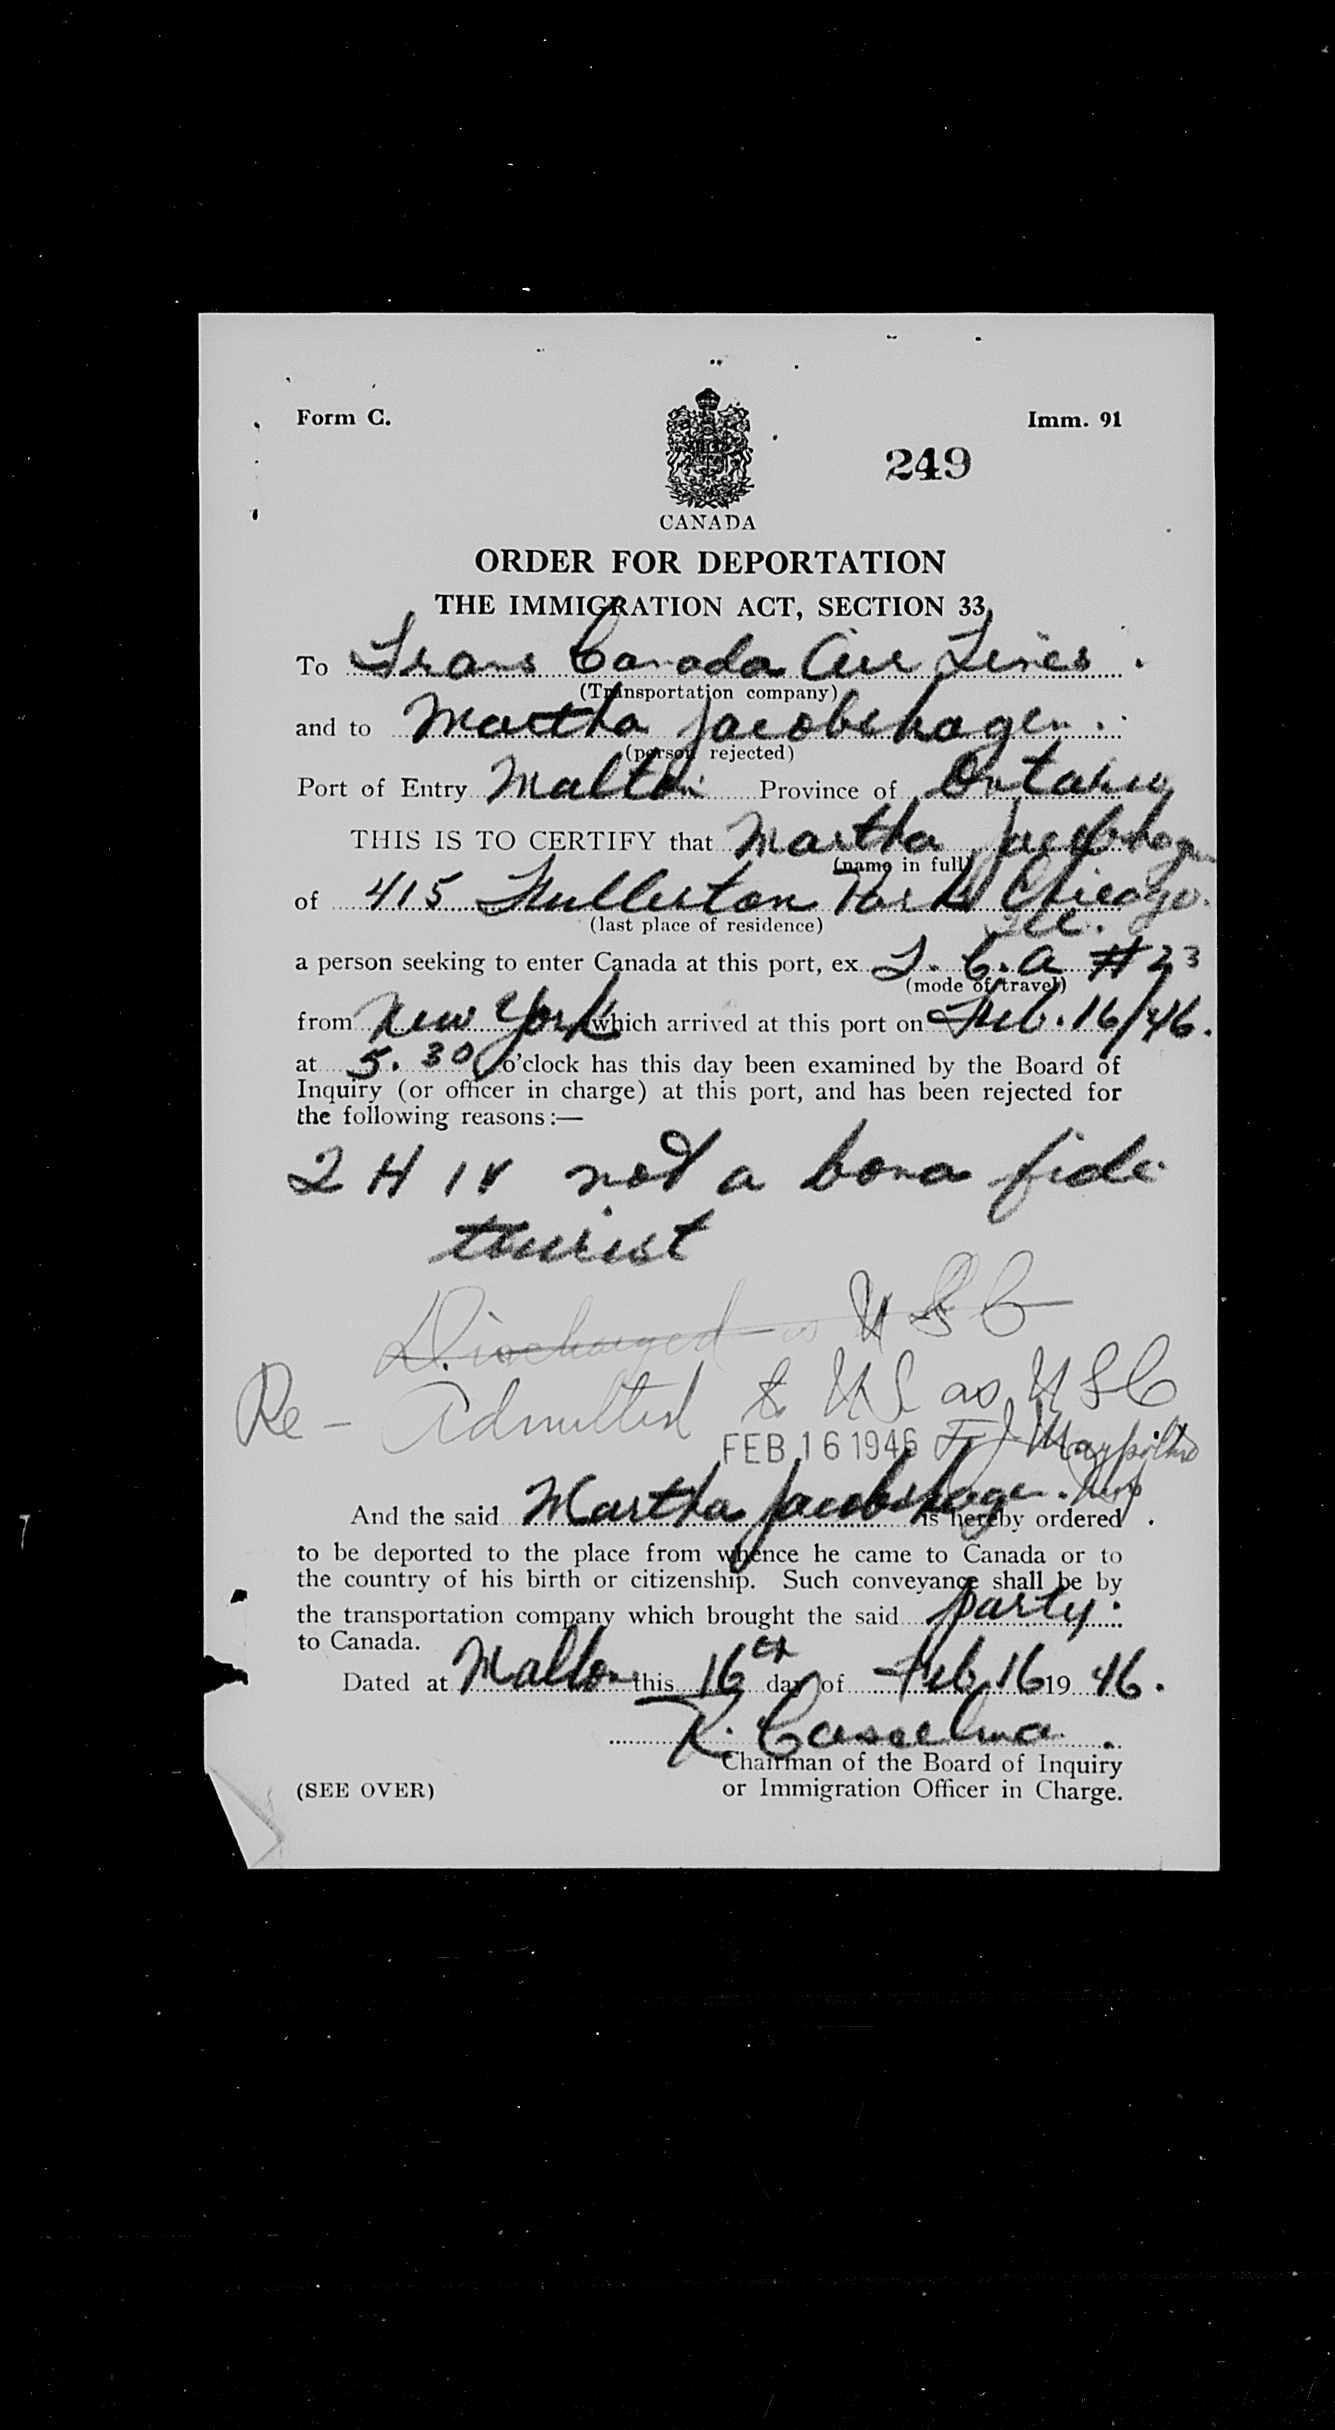 Form C.
Imm. 91
249
CANADA
ORDER FOR DEPORTATION
THE IMMIGRATION ACT, SECTION 33
To Trans Canada Air Lines.
(Transportation company)
and to Martha Jacobshagen.
(person rejected)
Port of Entry Malton Province of Ontario
THIS IS TO CERTIFY that Martha Jacobshagen
(name in full)
of 415 Fullerton Park Chicago.
(last place of residence) Ill.
a person seeking to enter Canada at this port, ex T.C.A #23
(mode of travel)
from New York which arrived at this port on Feb. 16/46.
at 5.30 o'clock has this day been examined by the Board of
Inquiry (or officer in charge) at this port, and has been rejected for
the following reasons:—
not a bona fide
tourist
Discharged as USC
Re-Admitted to US as USC
FEB 16 1946
And the said Martha Jacobshagen. is hereby ordered
to be deported to the place from whence he came to Canada or to
the country of his birth or citizenship. Such conveyance shall be by
the transportation company which brought the said party.
to Canada.
Dated at Malton this 16th day of Feb 16 19 46.
Chairman of the Board of Inquiry
(SEE OVER) or Immigration Officer in Charge.